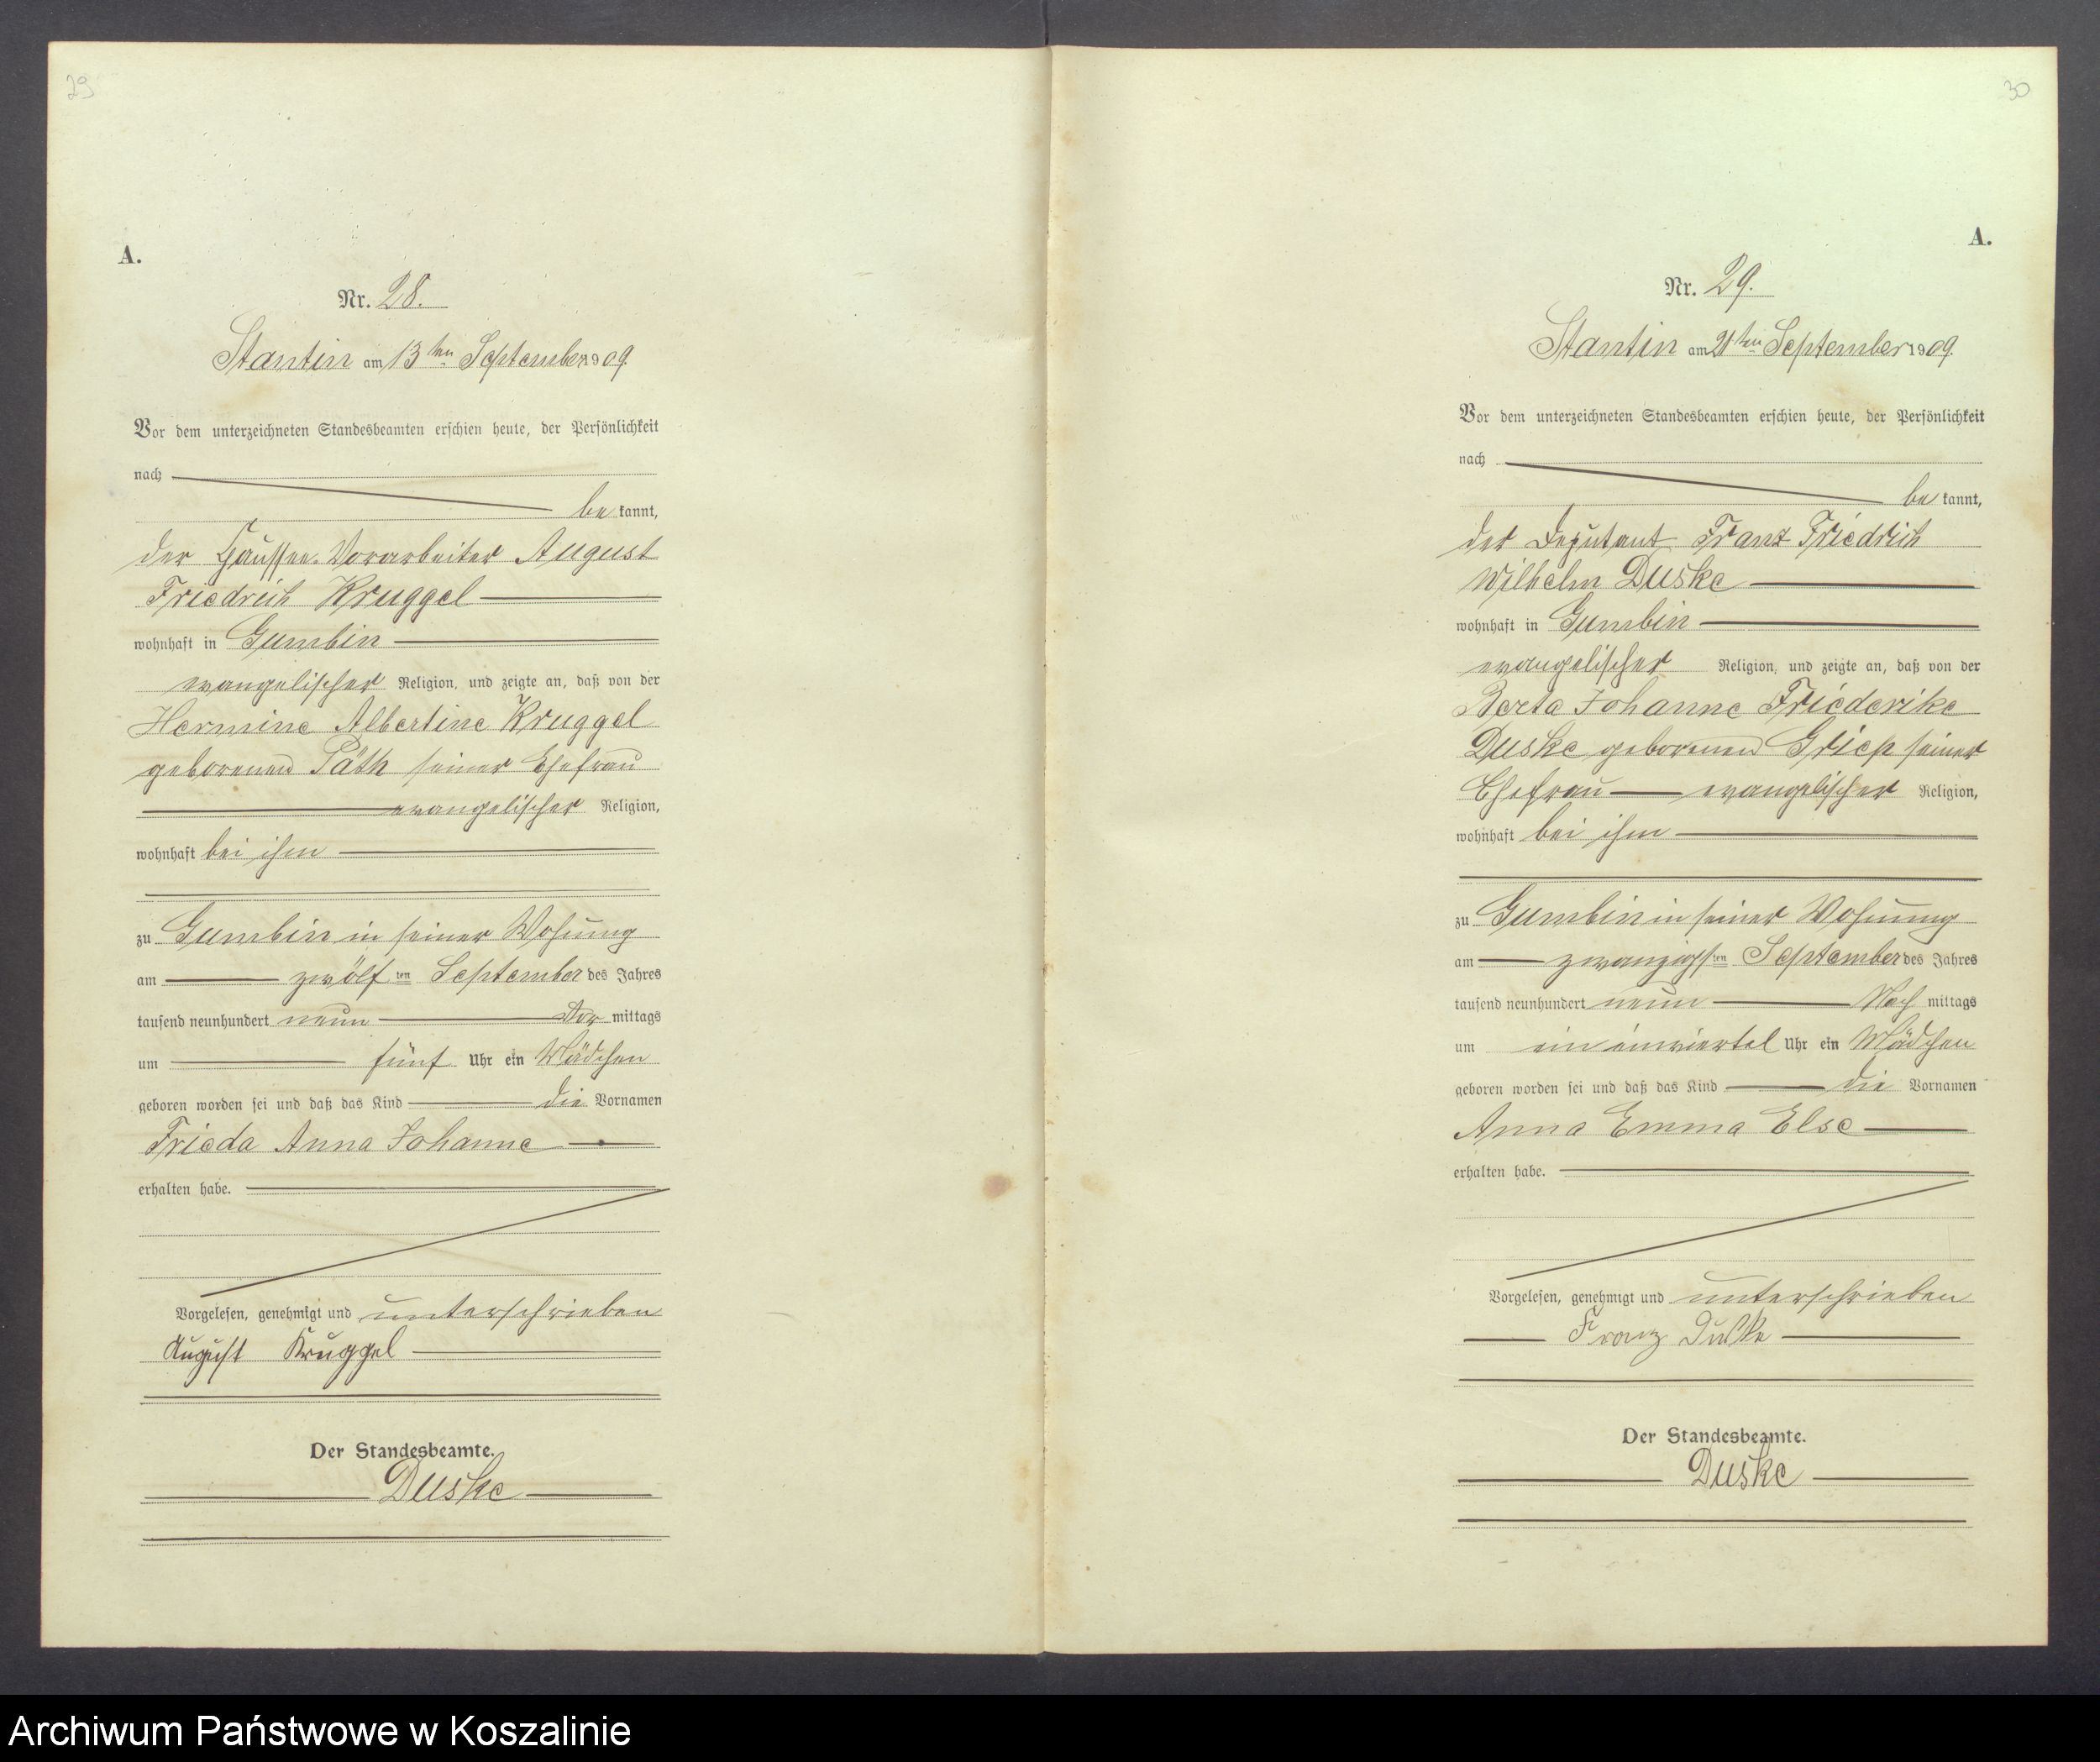 29
A.
Nr. 28.
Stantin am 13ten September 1909.
Vor dem unterzeichneten Standesbeamten erschien heute, der Persönlichkeit
nach
be kannt,
der Vorarbeiter August
Friedrich Kruggel
wohnhaft in Gumbin
evangelischer Religion, und zeigte an, daß von der
Hermine Albertine Kruggel
geborenen Päth seiner Ehefrau
evangelischer Religion,
wohnhaft bei ihm
zu Gumbin in seiner Wohnung
am zwölf ten September des Jahres
tausend neunhundert neun Vor mittags
um fünf Uhr ein Mädchen
geboren worden sei und daß das Kind die Vornamen
Frieda Anna Johanne
erhalten habe.
Vorgelesen, genehmigt und unterschrieben
August Kruggel
Der Standesbeamte.
Duske
30
A.
Nr. 29.
Stantin am 21ten September 1909.
Vor dem unterzeichneten Standesbeamten erschien heute, der Persönlichkeit
nach
be kannt,
der Deputant Franz Friedrich
Wilhelm Duske
wohnhaft in Gumbin
evangelischer Religion, und zeigte an, daß von der
Berta Johanne Friederike
Duske geborenen Griep seiner
Ehefrau evangelischer Religion,
wohnhaft bei ihm
zu Gumbin in seiner Wohnung
am zwanzigsten September des Jahres
tausend neunhundert neun Nach mittags
um ein einviertel Uhr ein Mädchen
geboren worden sei und daß das Kind die Vornamen
Anna Emma Else
erhalten habe.
Vorgelesen, genehmigt und unterschrieben
Franz Duske
Der Standesbeamte.
Duske
Archiwum Państwowe w Koszalinie